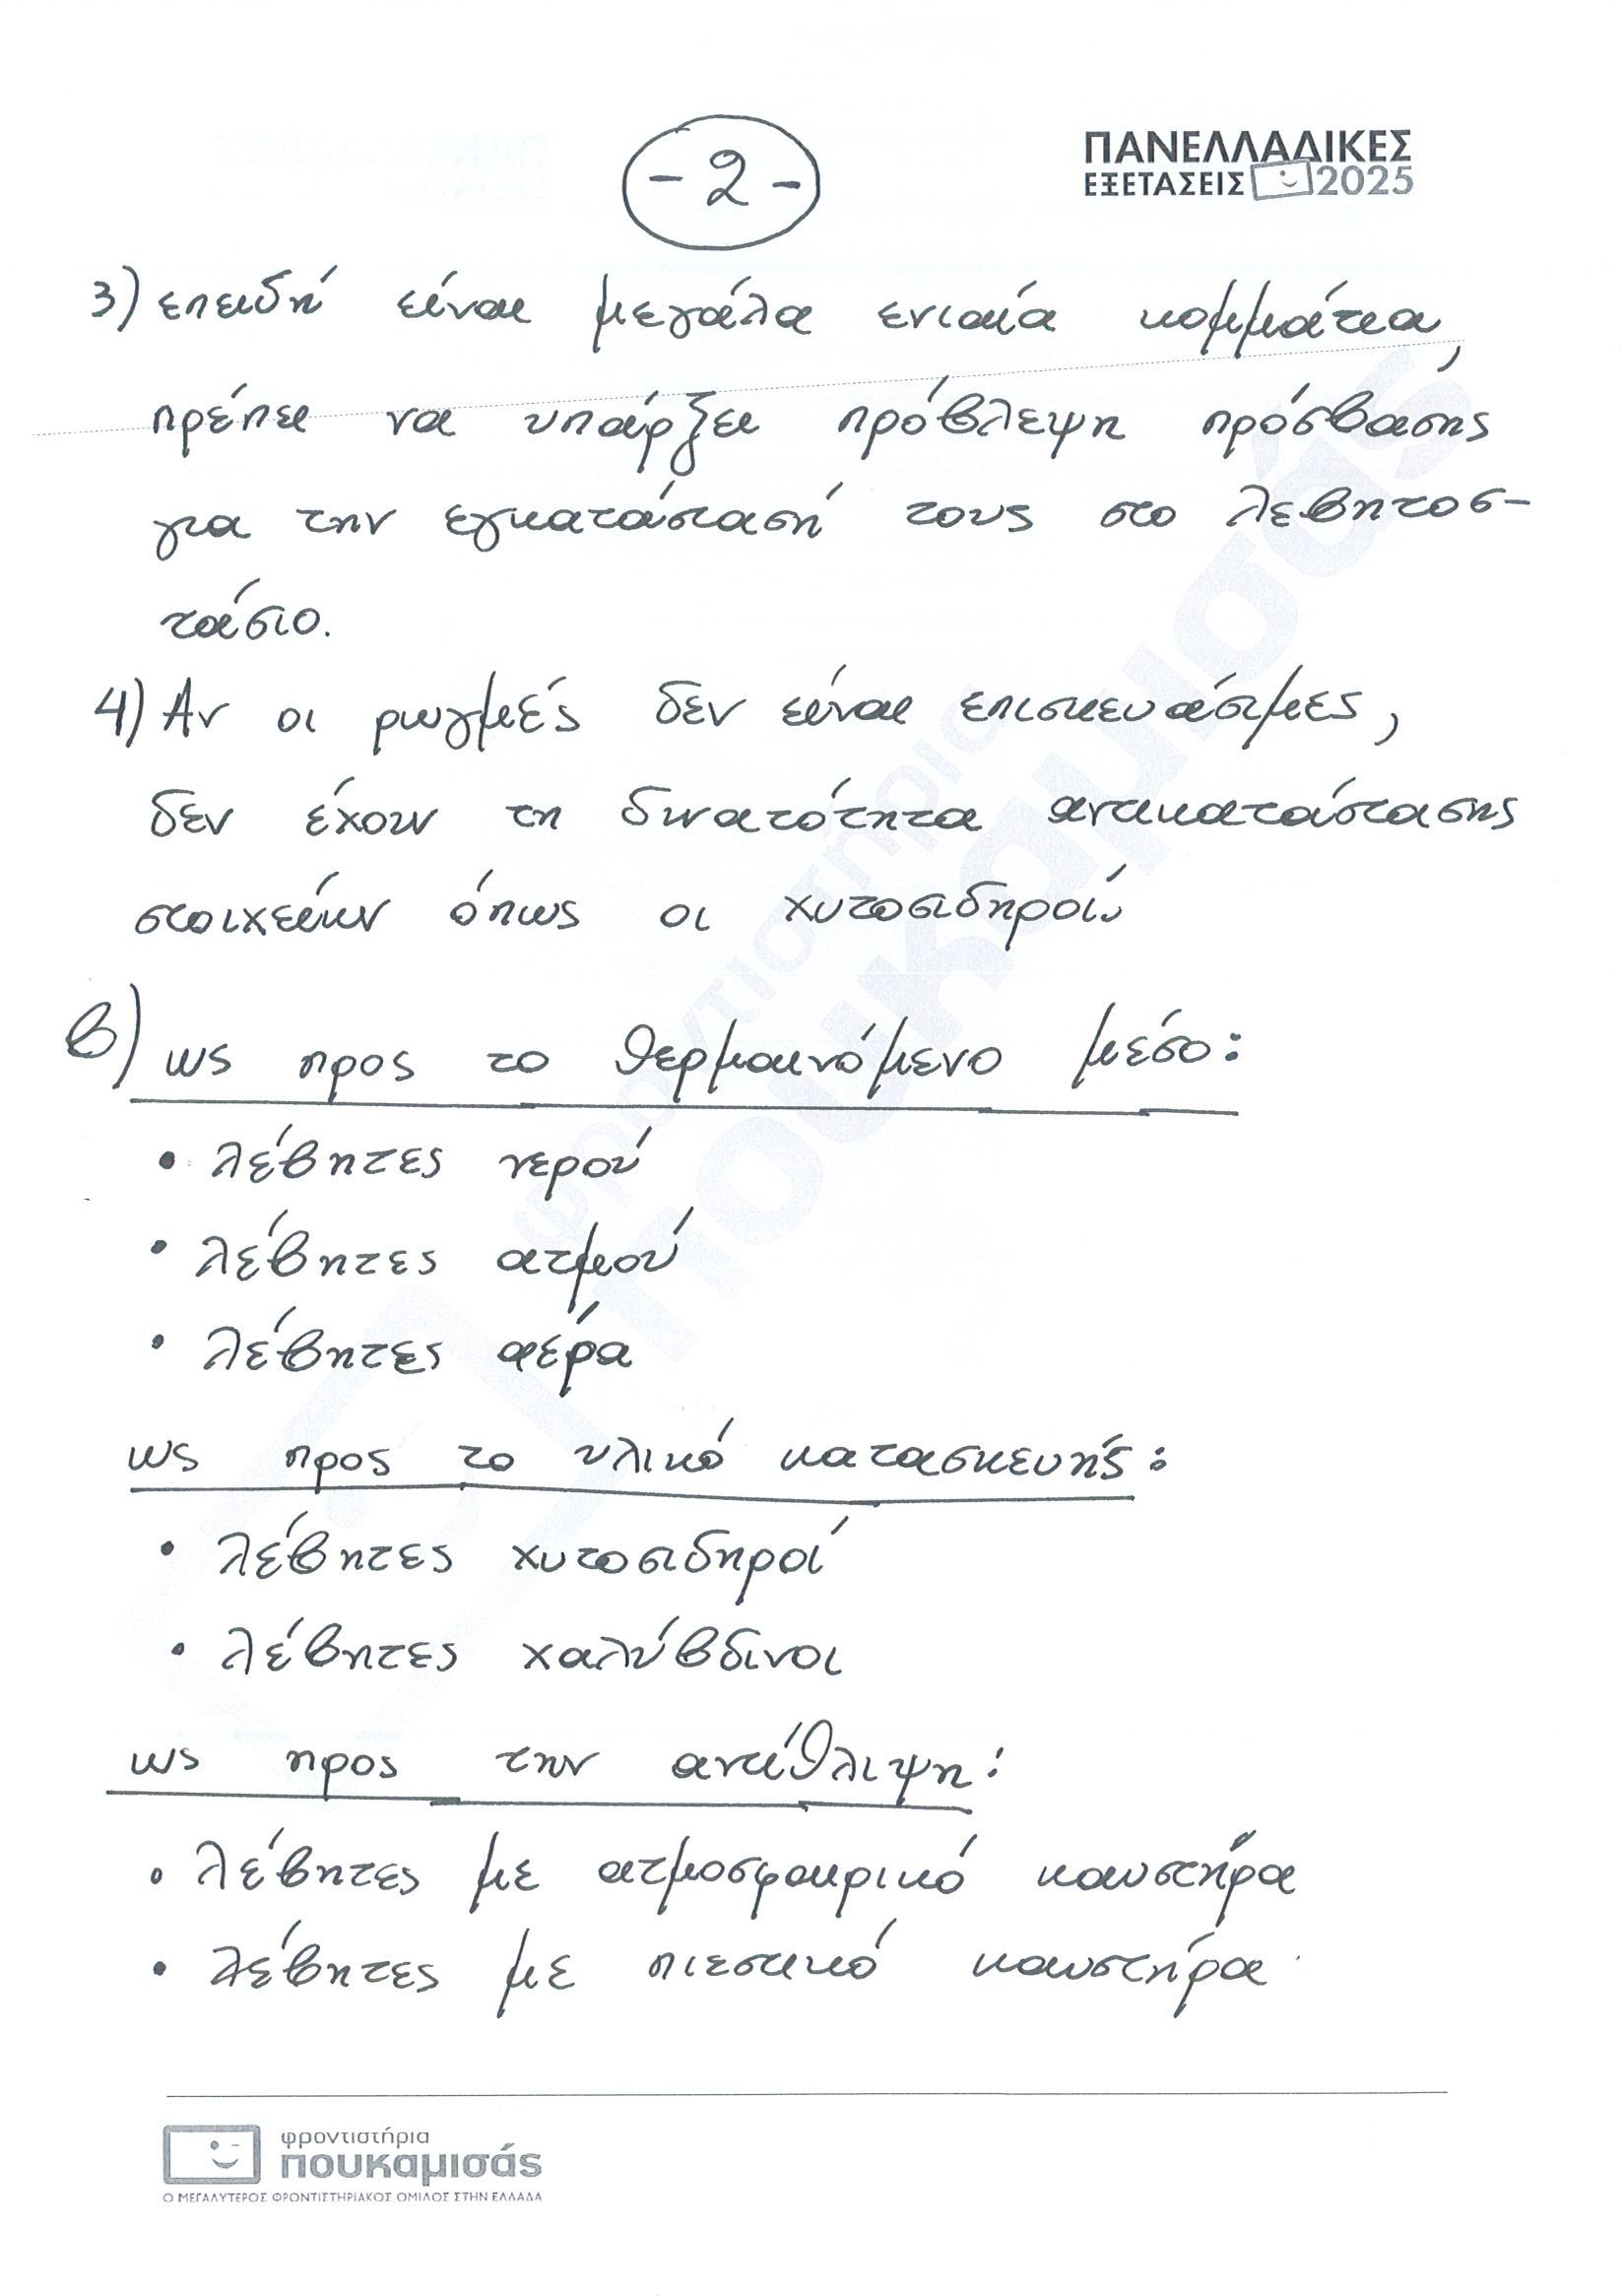 - 2 -
ΠΑΝΕΛΛΑΔΙΚΕΣ
ΕΞΕΤΑΣΕΙΣ 2025
3) επειδή είναι μεγάλα ενιαία κομμάτια,
πρέπει να υπάρξει πρόβλεψη πρόσβασης
για την εγκατάστασή τους στο λεβητοσ-
τάσιο.
4) Αν οι ρωγμές δεν είναι επισκευάσιμες,
δεν έχουν τη δυνατότητα αντικατάστασης
στοιχείων όπως οι χυτοσιδηροί.
β) ως προς το θερμαινόμενο μέσο:
• λέβητες νερού
• λέβητες ατμού
• λέβητες αέρα
ως προς το υλικό κατασκευής:
• λέβητες χυτοσιδηροί
• λέβητες χαλύβδινοι
ως προς την αντίθλιψη:
• λέβητες με ατμοσφαιρικό καυστήρα
• λέβητες με πιεστικό καυστήρα
φροντιστήρια
πουκαμισάς
Ο ΜΕΓΑΛΥΤΕΡΟΣ ΦΡΟΝΤΙΣΤΗΡΙΑΚΟΣ ΟΜΙΛΟΣ ΣΤΗΝ ΕΛΛΑΔΑ
φροντιστήρια
πουκαμισάς